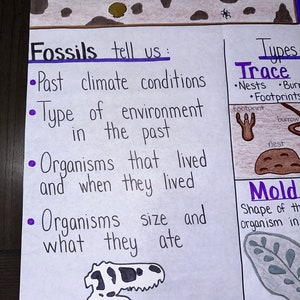 Fossils tell us:
• Past climate conditions
• Type of environment
in the past
• Organisms that lived
and when they lived
• Organisms size and
what they ate
Types
Trace
• Nests •
• Footprints
footprint
burrow
nest
Mold
Shape of
organism in